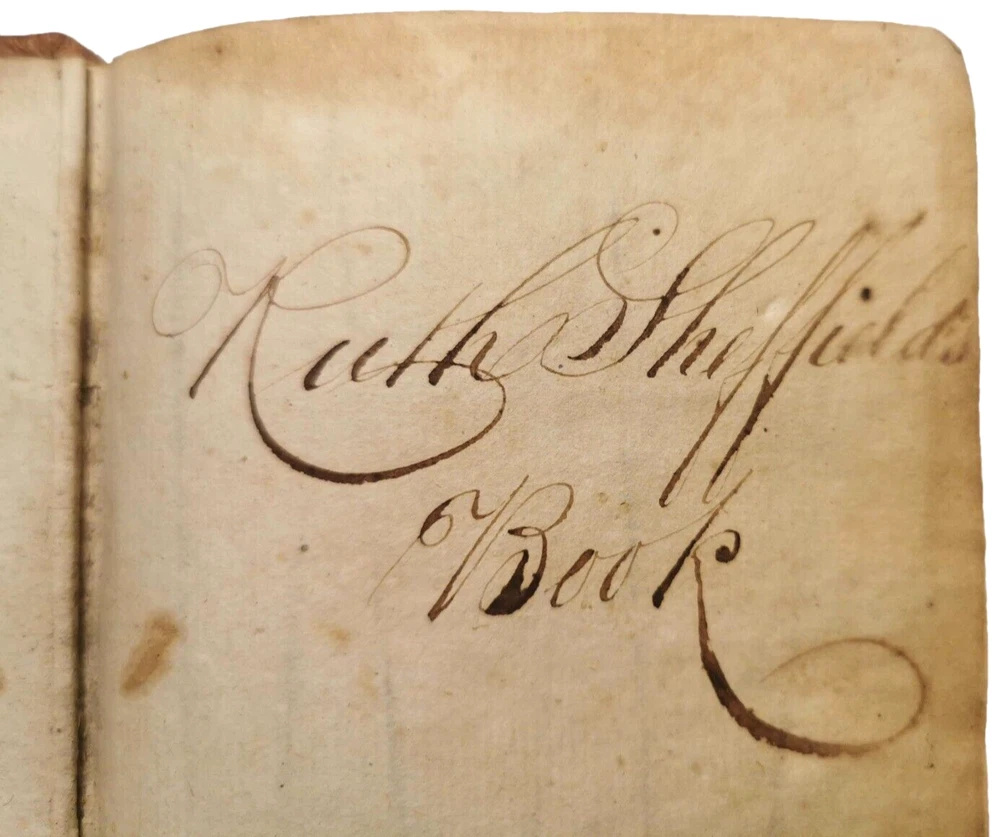 Ruth Sheffields
Book